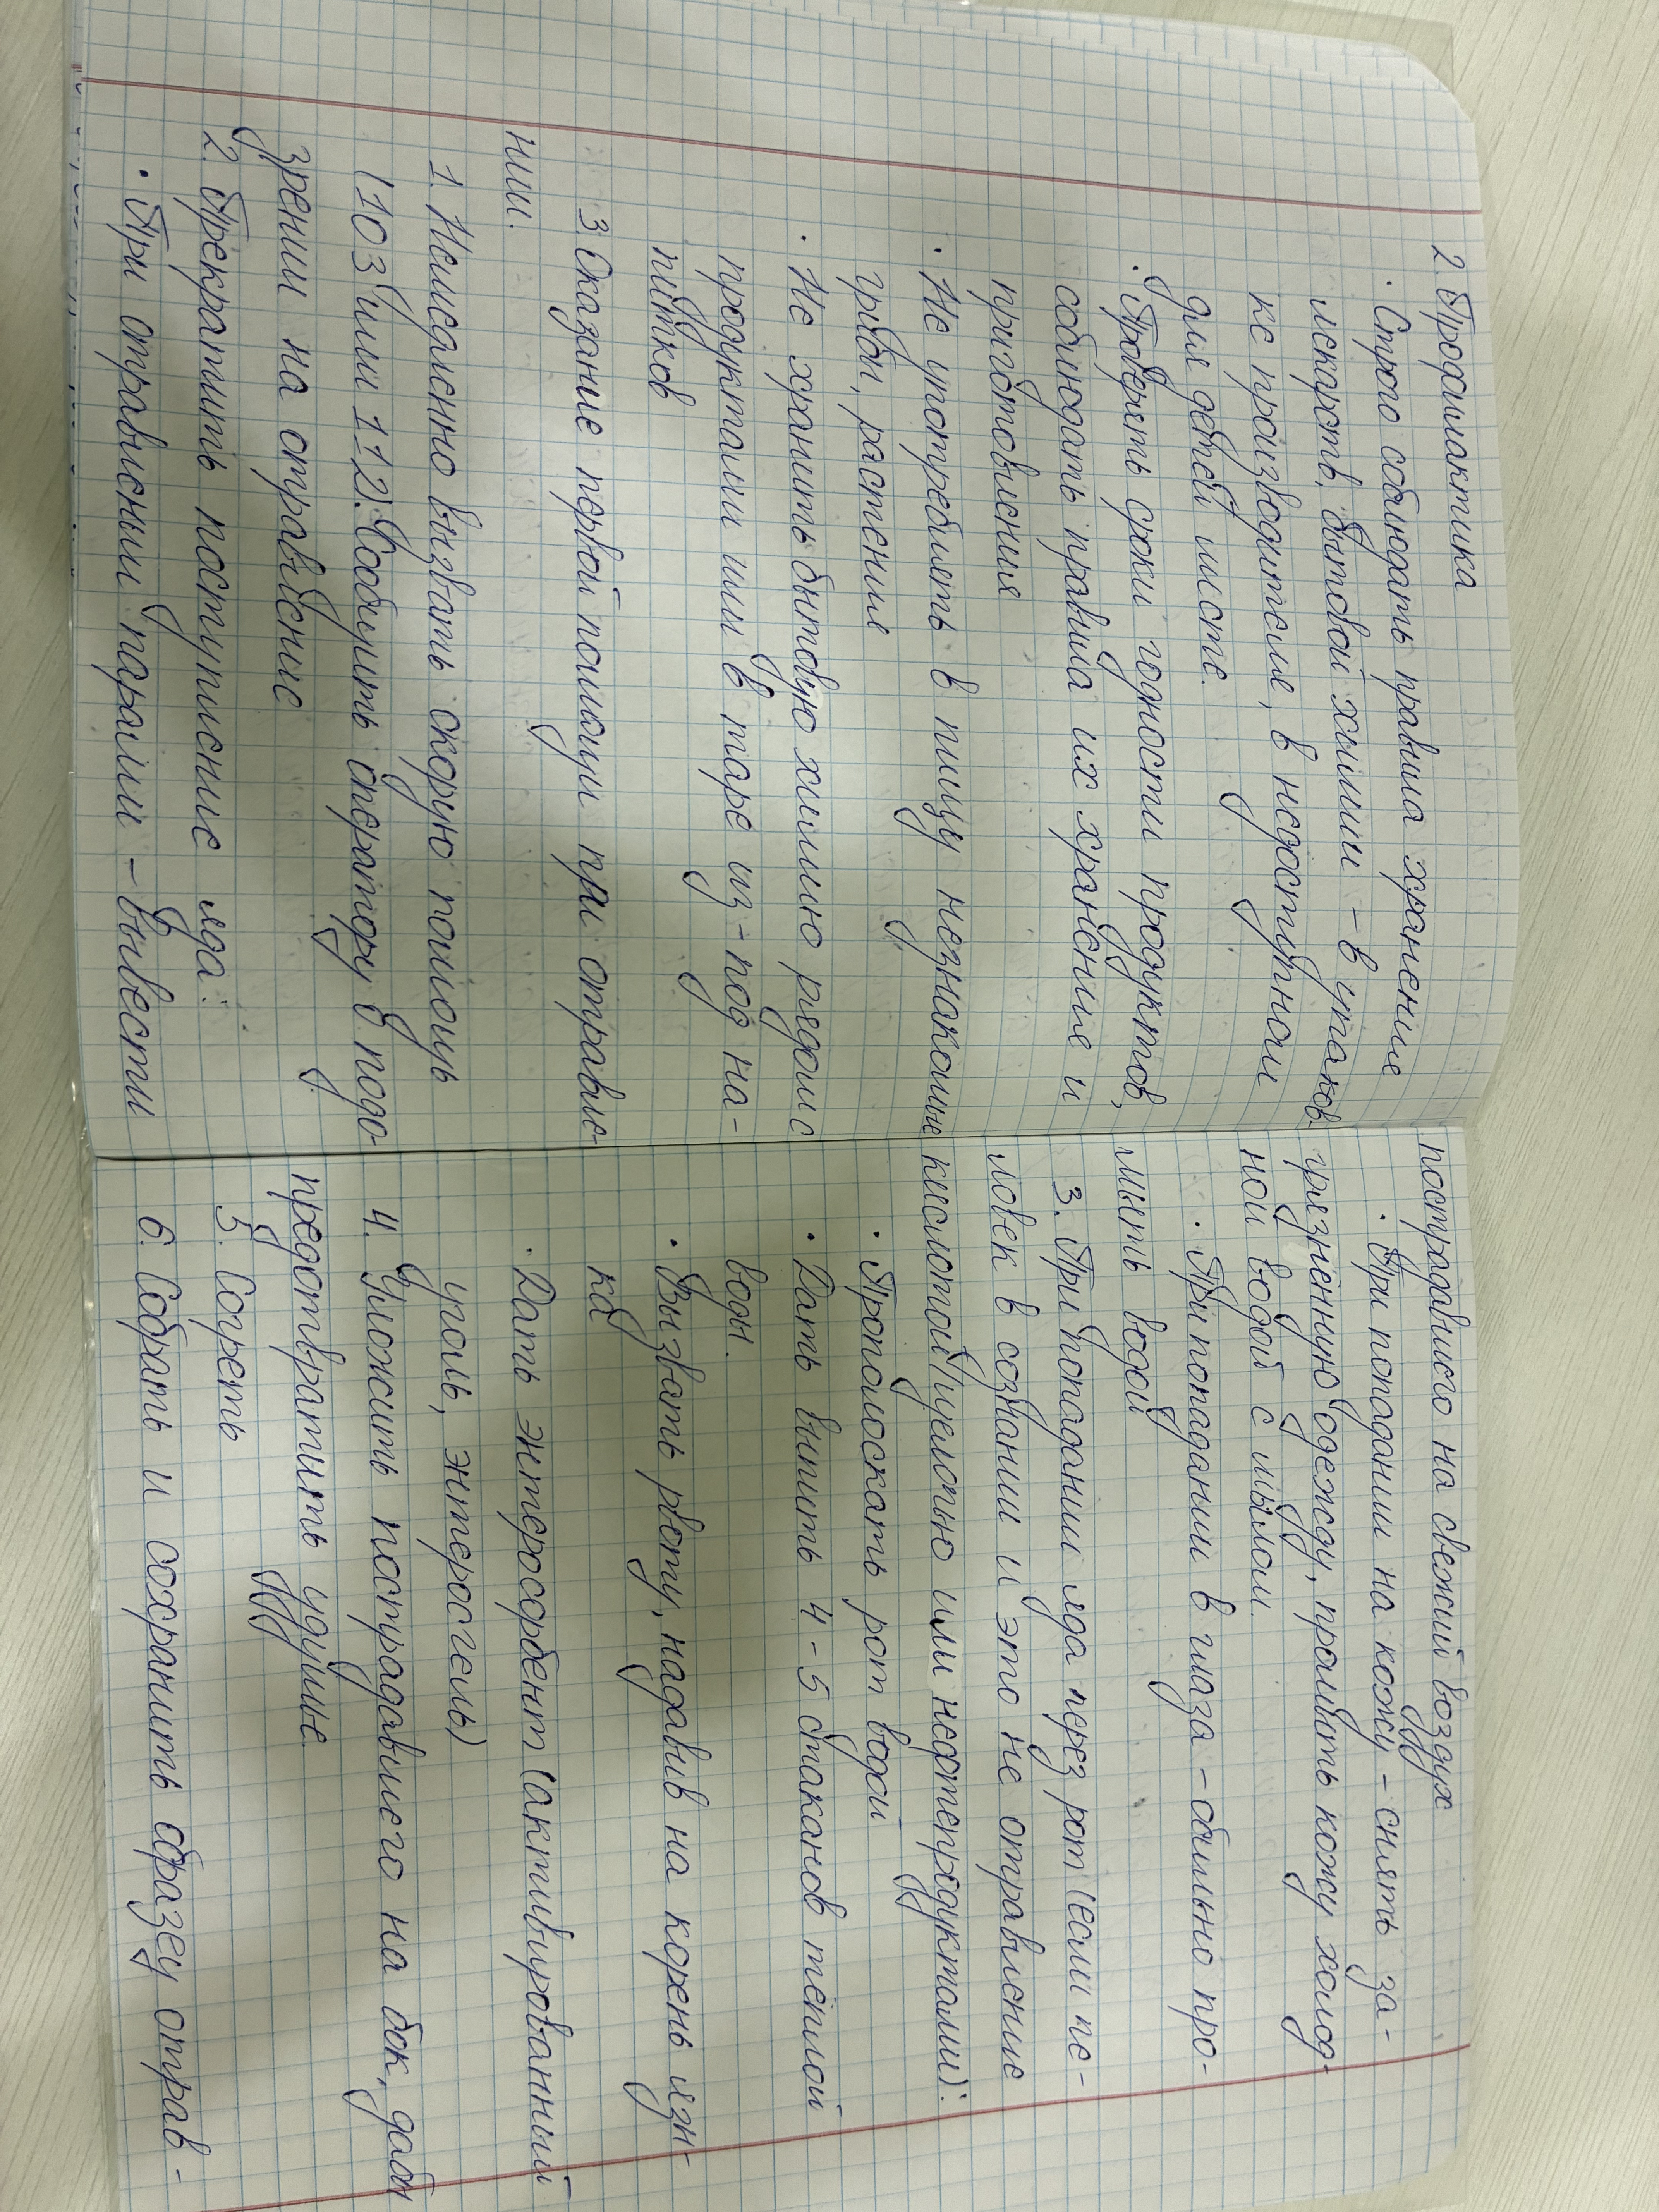 2. Профилактика
· Строго соблюдать правила хранение
лекарств, бытовой химии – в упаков-
ке производителе, в недоступном
для детей месте.
· Проверять сроки годности продуктов,
соблюдать правила их хранение и
приготовления
· Не употреблять в пищу незнакомые
грибы, растение
· Не хранить бытовую химию рядом с
продуктами или в таре из-под на-
питков
3. Оказание первой помощи при отравле-
нии.
1. Немедленно вызвать скорую помощь
(103 или 112). Сообщить оператору о подо-
зрении на отравление
2. Прекратить поступление яда:
· При отравлении парами – вывести
пострадавшего на свежий воздух
· При попадании на кожу – снять за-
грязненную одежду, промыть кожу холод-
ной водой с мылом.
· При попадании в глаза – обильно про-
мыть водой
3. При попадании яда через рот (если че-
ловек в сознании и это не отравление
кислотой/щелочью или нефтепродуктами):
· Прополоскать рот водой
· Дать выпить 4-5 стаканов теплой
воды.
· Вызвать рвоту, надавив на корень язы-
ка
· Дать энтеросорбент (активированный
уголь, энтеросгель)
4. Уложить пострадавшего на бок, дабы
предотвратить удушье.
5. Согреть
6. Собрать и сохранить образец отрав-